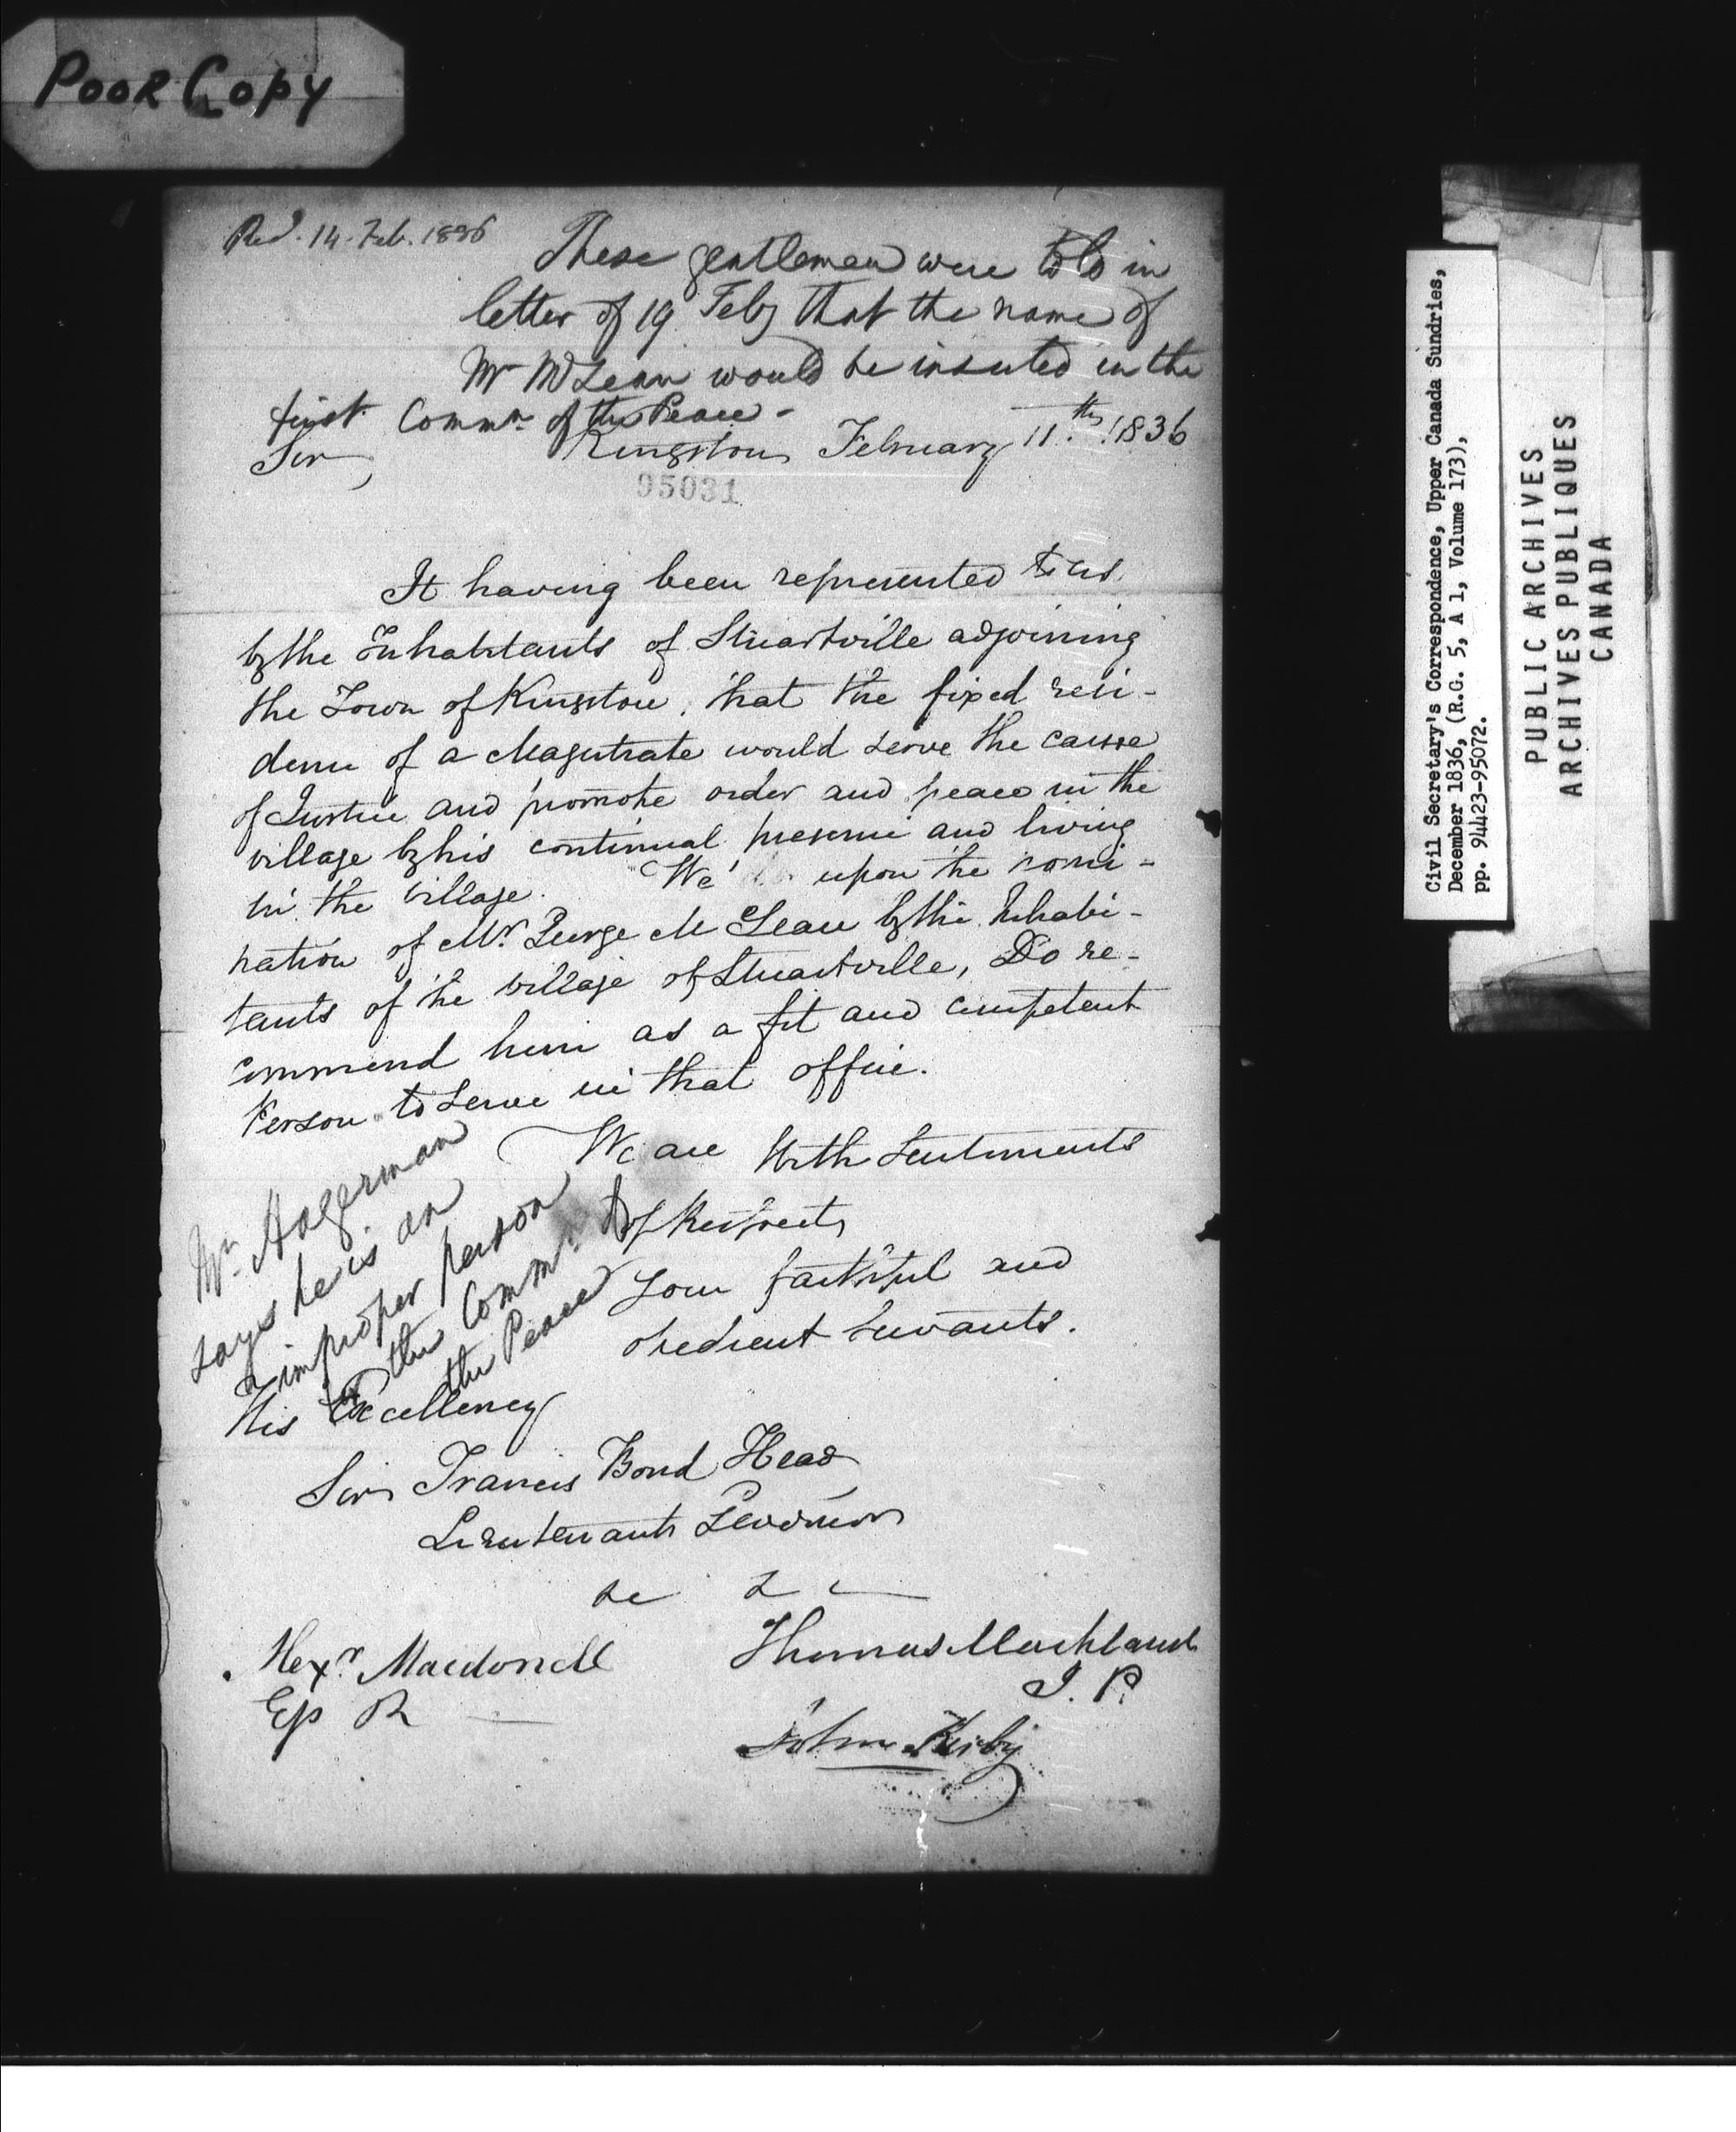 Poor Copy
Recd. 14. Feb. 1836
These gentlemen were told in
letter of 19 Feby that the name of
Mr McLean would be inserted in the
first Commn. of the Peace -
Sir, Kingston February 11.th 1836
95031
It having been represented to us
by the Inhabitants of Stuartville adjoining
the Town of Kingston, that the fixed resi-
dence of a Magistrate would serve the cause
of Justice and promote order and peace in the
village by his continual presence and living
in the village. We upon the nomi-
nation of Mr. George McLean by the Inhabi-
tants of the village of Stuartville, Do re-
commend him as a fit and competent
Person to serve in that office.
We are With Sentiments
of Respect,
Your faithful and
obedient Servants.
Mr. Hagerman
says he is an
improper person
for the Commn. of
the Peace
His Excellency
Sir Francis Bond Head
Lieutenant Governor
&c &c
Alexr. Macdonell
Thomas Markland
J. P.
Ep R
John Kirby
Civil Secretary's Correspondence, Upper Canada Sundries,
December 1836, (R.G. 5, A 1, Volume 173),
pp. 94423-95072.
PUBLIC ARCHIVES
ARCHIVES PUBLIQUES
CANADA